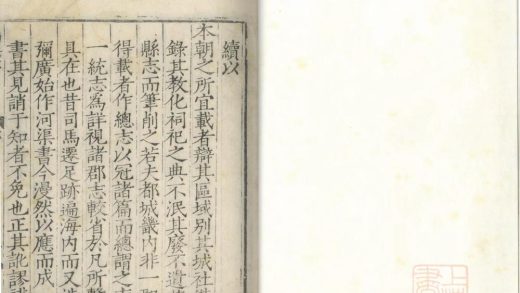 續以
本朝之所宜載者辯其區域別其城社
錄其教化祠祀之典不泯其廢不遺
縣志而筆削之若夫都城畿內非一
得載者作總志以冠諸篇而總謂之
一統志為詳視諸郡志較省於凡所
具在也昔司馬遷足跡遍海內而又
彌廣始作河渠書今漫然以應而成
書其見誚于知者不免也正其訛謬
上